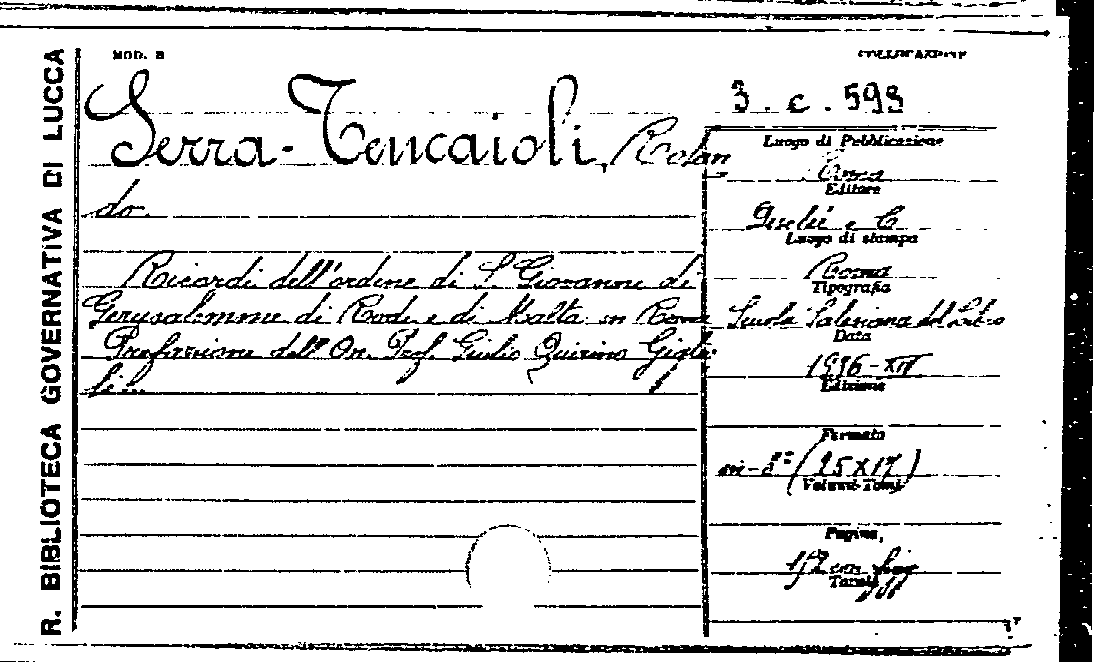 R. BIBLIOTECA GOVERNATIVA DI LUCCA
MOD. B
COLLOCAZIONE
3. c. 593
Serra-Tencaioli, Rolan
do.
Ricordi dell'ordine di S. Giovanni di
Gerusalemme di Rodi e di Malta in Roma
Prefazione dell' On. Prof. Giulio Quirino Giglio
li.
Luogo di Pubblicazione
Roma
Editore
e C
Luogo di stampa
Roma
Tipografia
Scuola Salesiana del Libro
Data
1936-XIV
Edizione
Formato
in-8° (25x17)
Volumi-Tomi
Pagine,
con fig
Tavole